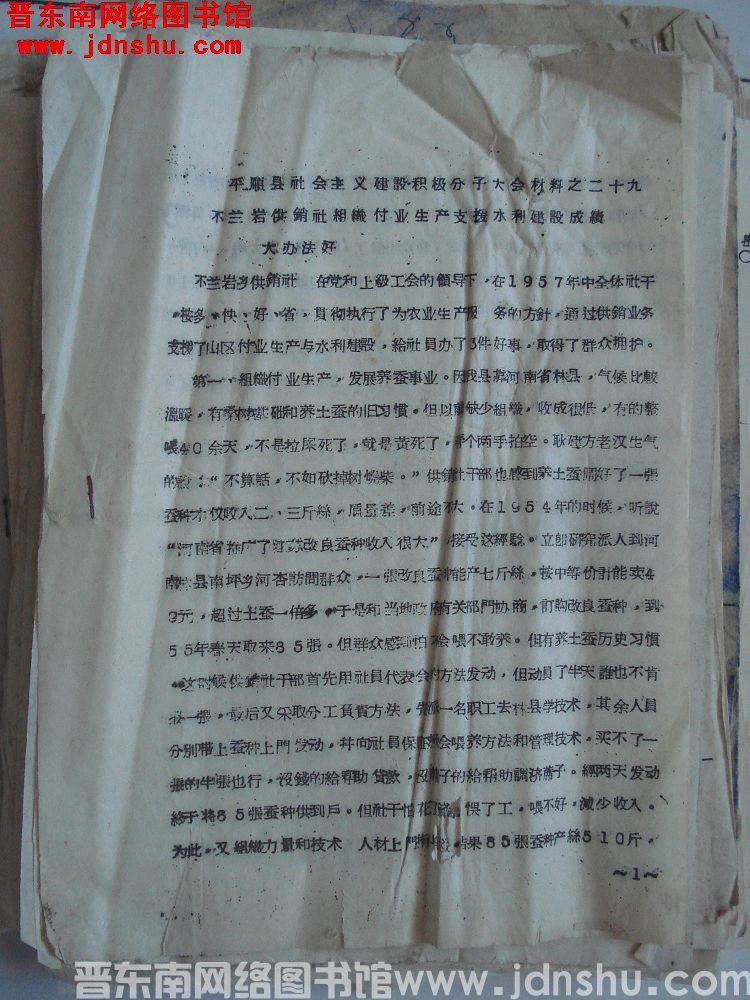 晋东南网络图书馆
www.jdnshu.com
平順县社会主义建設积极分子大会材料之二十九
不兰岩供銷社組織付业生产支援水利建設成績
大办法好
不兰岩乡供銷社 在党和上級工会的領导下，在1957年中全体社干
按多、快、好、省，貫彻执行了为农业生产服 务的方針，通过供銷业务
支援了山区付业生产与水利建設，給社員办了3件好事，取得了群众拥护。
第一、組織付业生产，发展养蚕事业。因我县靠河南省林县，气候比較
溫暖，有桑树基础和养土蚕的旧习慣。但以前缺少組織，收成很低，有的整
喂40余天，不是拉尿死了，就是黄死了，弄个两手拍空。耿建方老汉生气
的說：“不算話，不如砍掉树燒柴。”供銷社干部也感到养土蚕閙好了一張
蚕种才仅收入二、三斤絲，质量差，前途不大。在1954年的时候，听說
“河南省推广了江苏改良蚕种收入很大”，接受这經驗。立即研究派人到河
南林县南坪乡河杏訪問群众，一張改良蚕种能产七斤絲，按中等价計能卖4
9元，超过土蚕一倍多。于是和当地政府有关部門协商，訂购改良蚕种，到
55年春天取来85張。但群众感到怕不会喂不敢养。但有养土蚕历史习慣
。这时候供銷社干部首先用社員代表会的方法发动，但动員了半天誰也不肯
要一張，最后又采取分工負責方法，先派一名职工去林县学技术，其余人員
分別带上蚕种上門发动，幷向社員保証教会喂养方法和管理技术，买不了一
張的半張也行，沒錢的給帮助貸款，沒蓆子的給帮助調济蓆子。經两天发动
終于将85張蚕种供到戶。但社干怕花了錢，悞了工，喂不好，減少收入。
为此，又組織力量和技术 人材上門指导，結果85張蚕种产絲510斤，
～1～
晋东南网络图书馆www.jdnshu.com